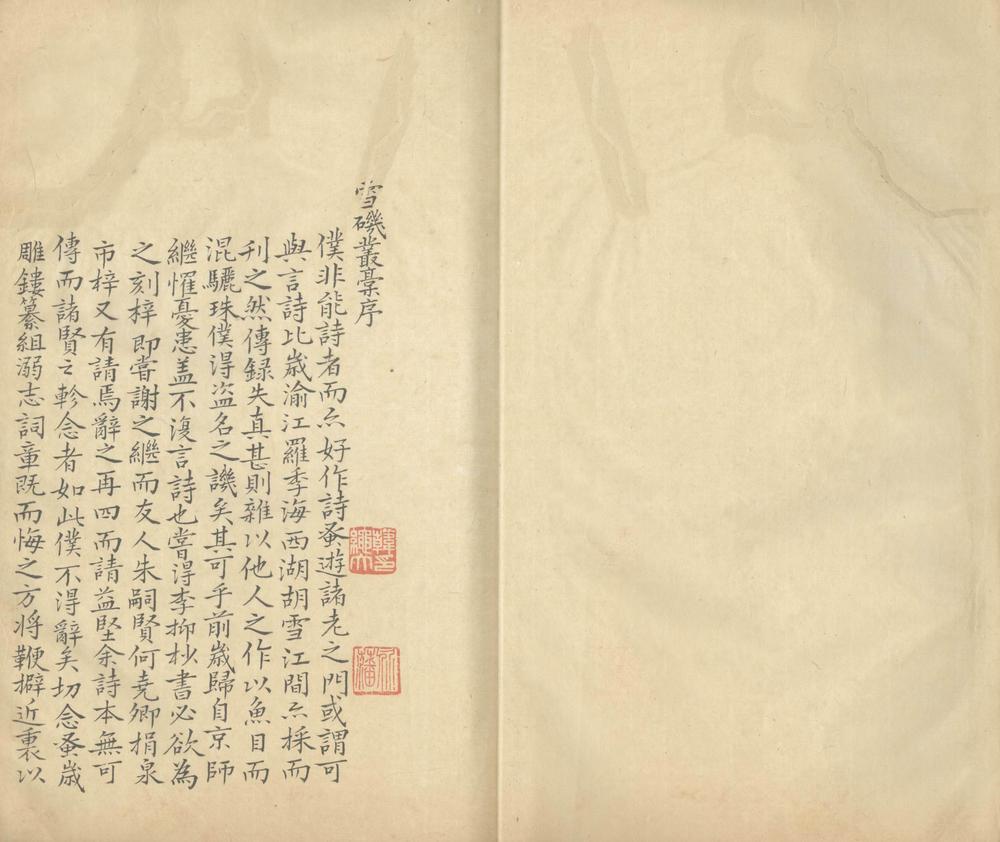 雪磯叢稾序
僕非能詩者而亦好作詩蚤遊諸老之門或謂可
與言詩比歲渝江羅季海西湖胡雪江間亦採而
刋之然傳録失真甚則雜以他人之作以魚目而
混驪珠僕得盗名之譏矣其可乎前歲歸自京師
繼懼憂患盖不復言詩也嘗得李抑杪書必欲為
之刻梓即嘗謝之繼而友人朱嗣賢何堯卿捐泉
市梓又有請焉辭之再四而請益堅余詩本無可
傳而諸賢之軫念者如此僕不得辭矣切念蚤歲
雕鏤纂組溺志詞章既而悔之方将鞭擗近裏以